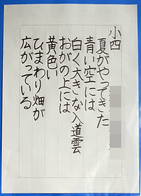 小西
夏がやってきた
青い空には
白く大きな入道雲
おかの上には
黄色い
ひまわり畑が
広がっている